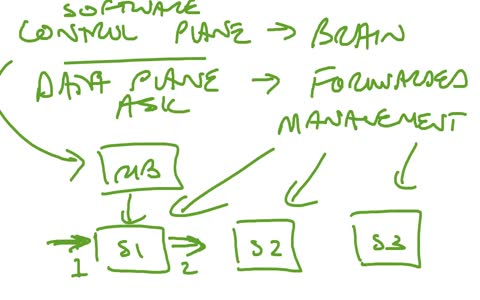 SOFTWARE
CONTROL PLANE → BRAIN
DATA PLANE → FORWARDED
ASK
MANAGEMENT
S1 S2 S3
1 2